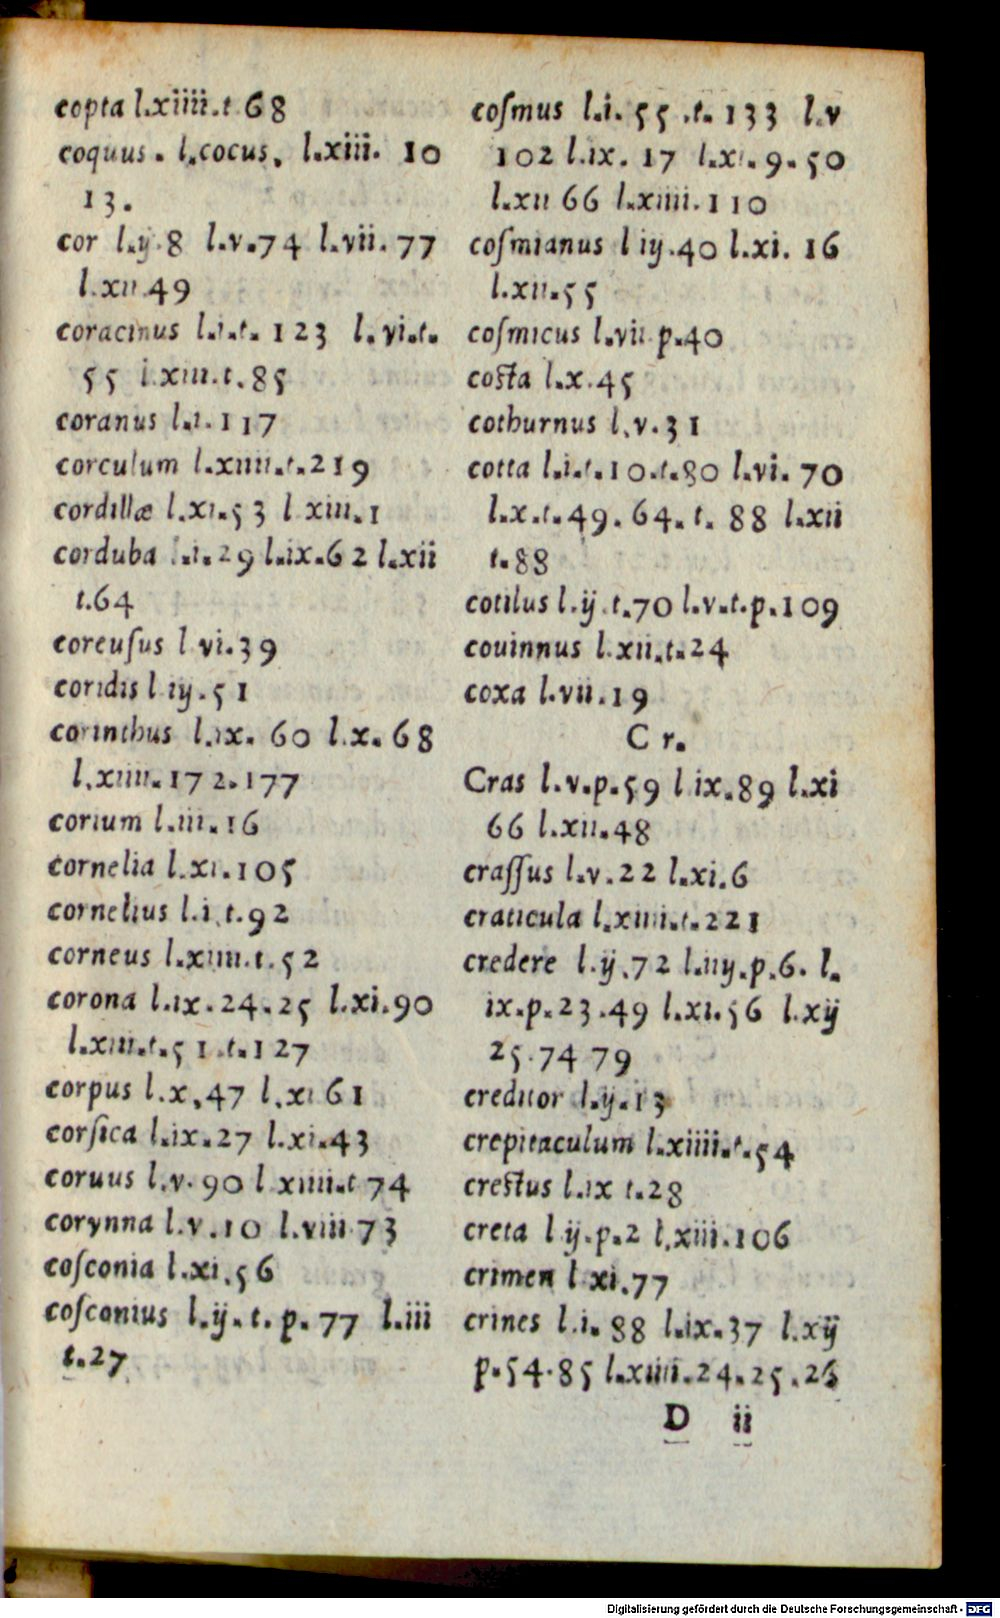 copta l.xiiii.t 68
coquus . l.cocus. l.xiii. 10
13.
cor l.ij.8 l.v.74 l.vii. 77
l.xii 49
coracinus l.i.t. 123 l.vi.t.
55 l.xiii.t.85
coranus l.i.117
corculum l.xiiii.t.219
cordillæ l.xi.53 l xiii.1
corduba l.i.29 l.ix.62 l.xii
t.64
coreusus l vi.39
coridis l iij.51
corinthus l.ix. 60 l.x.68
l.xiiii.172.177
corium l.iii.16
cornelia l.xi.105
cornelius l.i.t.92
corneus l.xiiii.t.52
corona l.ix.24.25 l.xi.90
l.xiii.t.51.t.127
corpus l.x.47 l.xi 61
corſica l.ix.27 l.xi.43
coruus l.v.90 l xiiii.t 74
corynna l.v.10 l.viii 73
coſconia l.xi.56
coſconius l.ij.t. p. 77 l.iii
t.27
coſmus l.i. 55 .t. 133 l.v
102 l.ix. 17 l.xi.9.50
l.xii 66 l.xiiii.110
coſmianus l iij.40 l.xi. 16
l.xii.55
coſmicus l.vii p.40
coſta l.x.45
cothurnus l.v.31
cotta l.i.t.10.t.80 l.vi. 70
l.x.t.49. 64. t. 88 l.xii
t.88
cotilus l.ij.t.70 l.v.t.p.109
couinnus l.xii.t.24
coxa l.vii.19
C r.
Cras l.v.p.59 l ix.89 l.xi
66 l.xii.48
craſſus l.v.22 l.xi.6
craticula l.xiiii.t.221
credere l.ij.72 l.iij.p.6. l.
ix.p.23.49 l.xi.56 l.xij
25.74 79
creditor l.ij.13
crepitaculum l.xiiii.t.54
creſtus l.ix t.28
creta l ij.p.2 l.xiii.106
crimen l xi.77
crines l.i. 88 l.ix.37 l.xij
p.54.85 l.xiiii.24.25.26
D ii
Digitalisierung gefördert durch die Deutsche Forschungsgemeinschaft - DFG